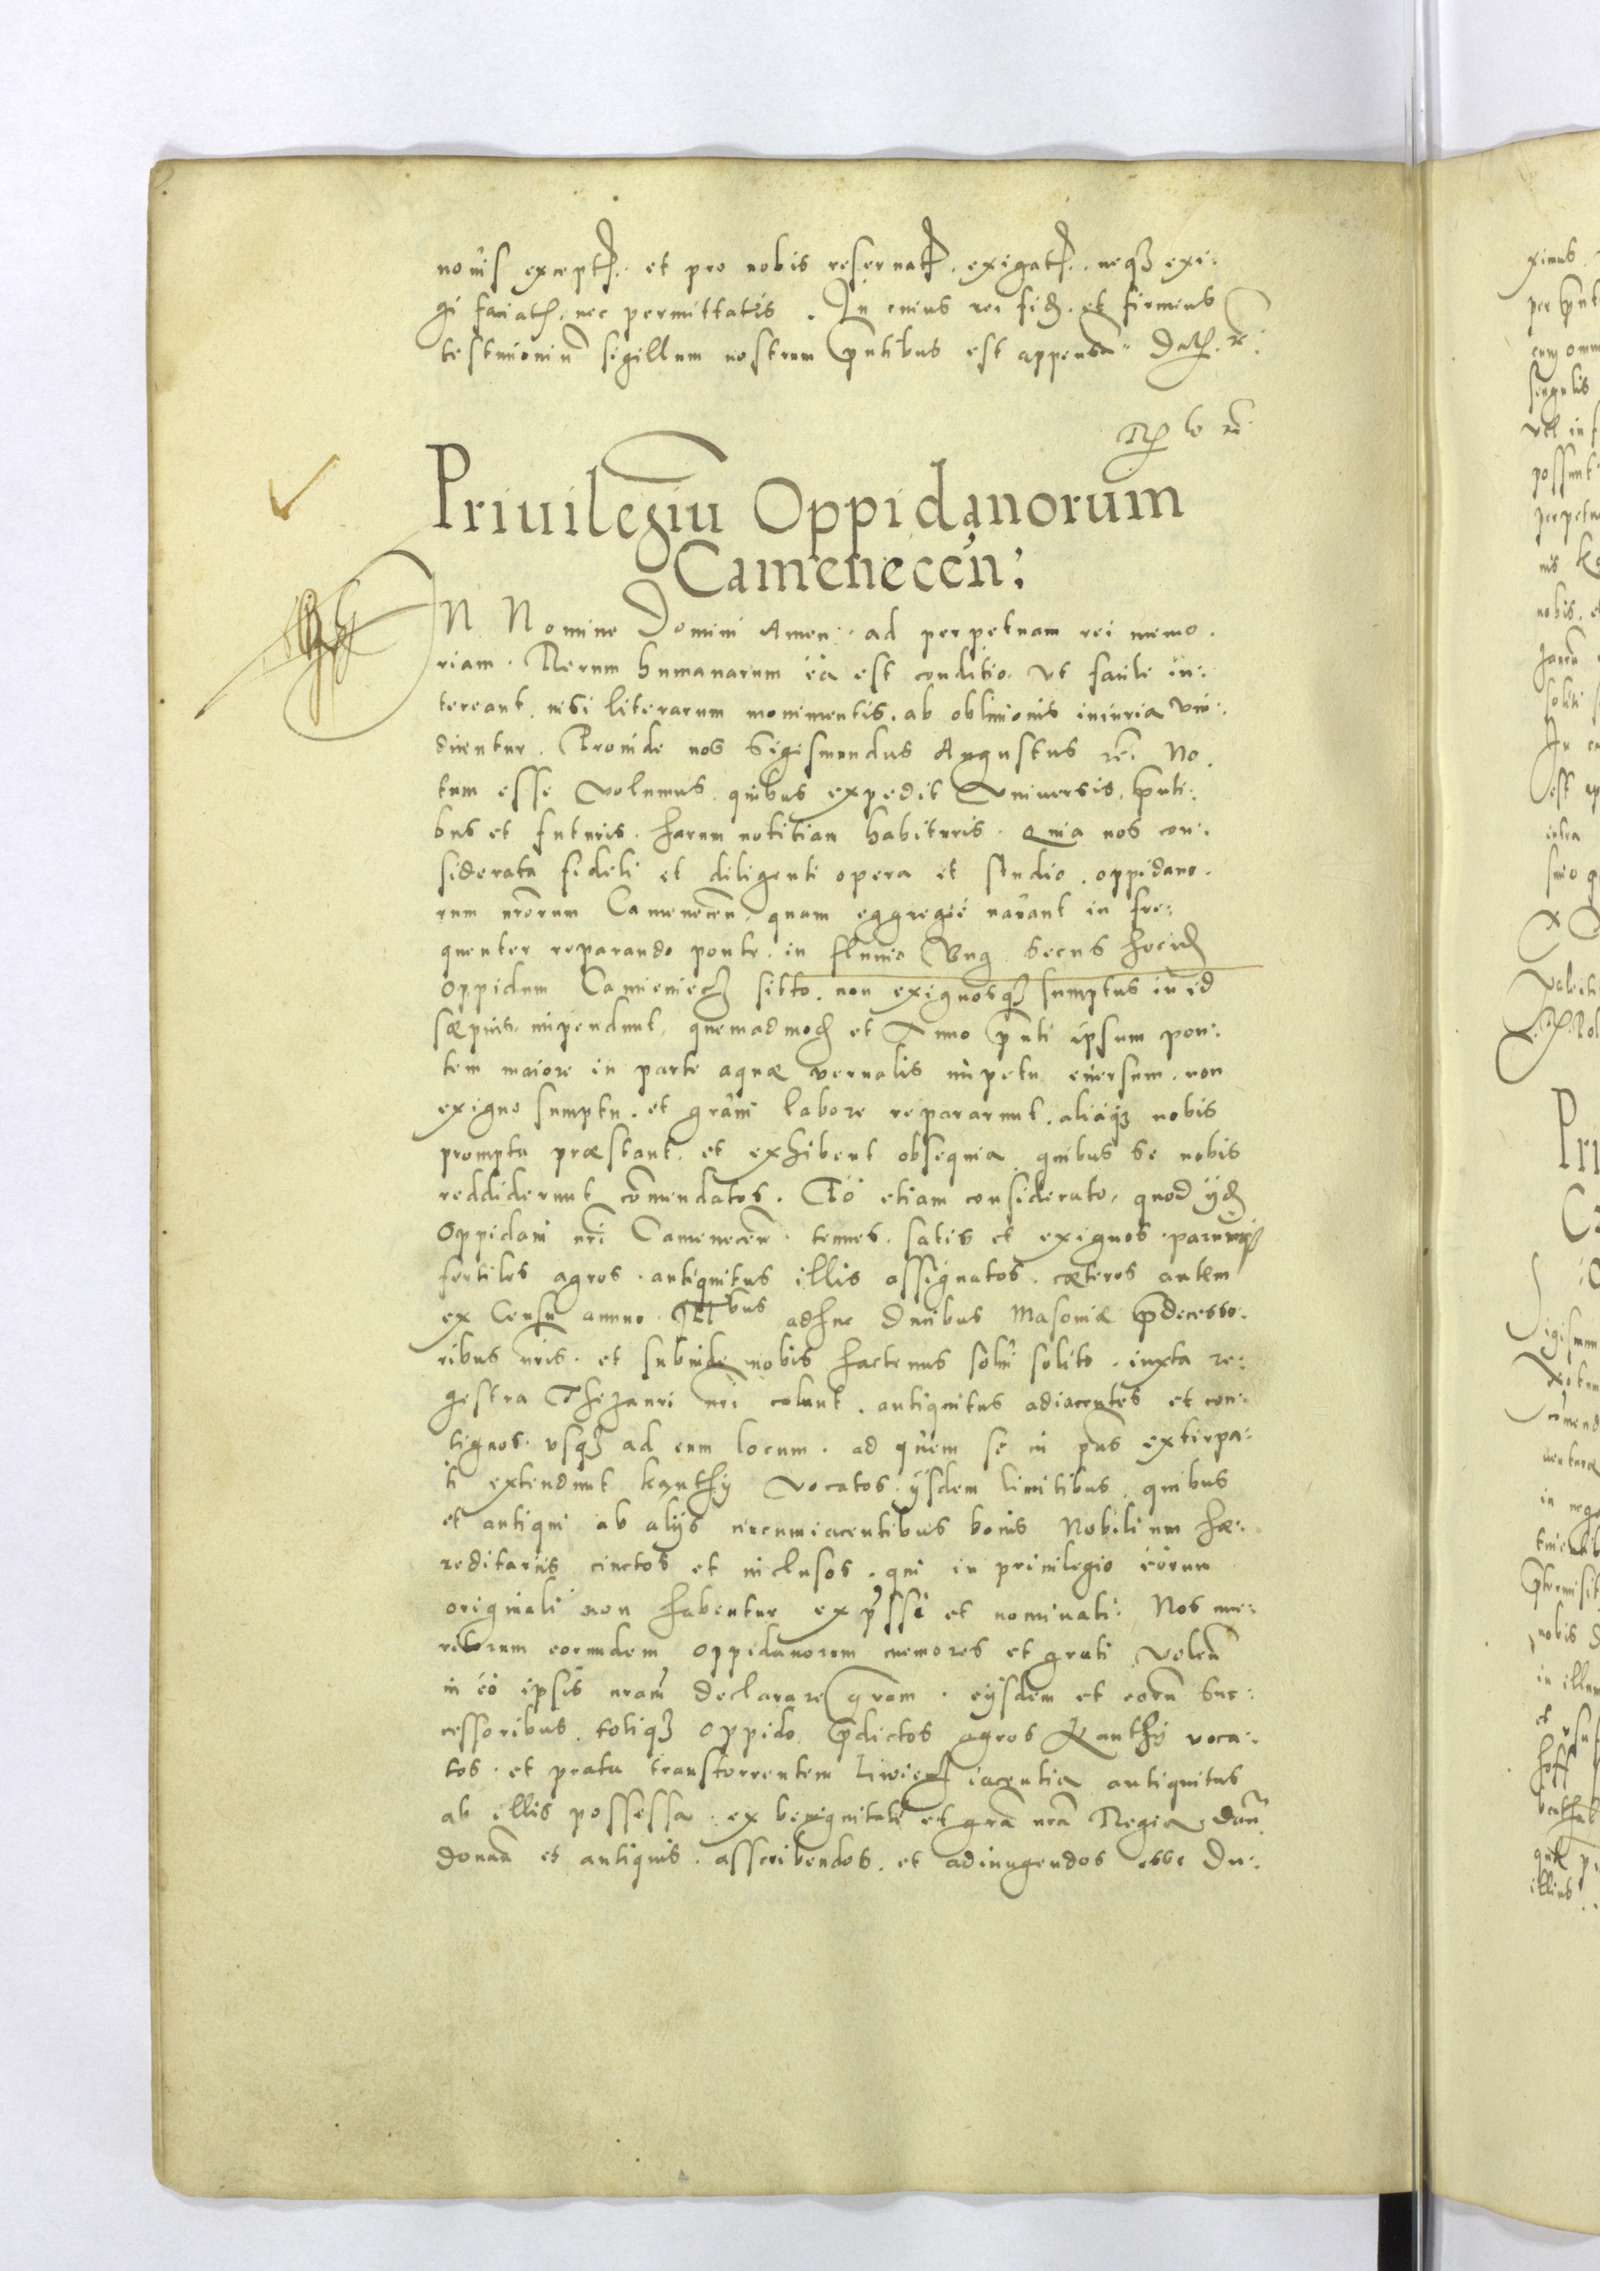 nouis except. et pro nobis reseruat. exigat. neq3 exi:
gi faciat, nec permittatis. In cuius rei fid. et firmius
testimoniu sigillum nostrum pntibus est appensu. Dat. rc:
Priuilegiu Oppidanorum
Camenecen:
IN Nomine Domini Amen. ad perpetuam rei memo.
riam. Rerum humanarum ea est conditio. Vt facile in:
tereant, nisi literarum monimentis. ab obliuionis iniuria vin:
dicentur. Proinde nos Sigismundus Augustus rc. No.
tum esse volumus. quibus expedit Vniuersis. pnti:
bus et futuris. harum notitiam habituris. Quia nos con:
siderata fideli et diligenti opera et studio. oppidano.
rum nrorum Camenecen. quam eggregie nauant in fre:
quenter reparando ponte. in fluuio Bug secus hocid
oppidum Camieniecz sitto. non exiguosq3 sumptus in id
sæpius impendunt, quemadmod et Anno pnti ipsum pon:
tem maiore in parte aquæ vernalis impetu euersum. non
exiguo sumptu. et graui labore repararunt. aliaq3 nobis
prompta præstant. et exhibent obsequia quibus se nobis
reddiderunt comendatos. Eo etiam considerato, quod ijd
Oppidani nri Camenecen. tenues. satis et exiguos. parumq3
fertiles agros. antiquitus illis assignatos. cæteros autem
ex Censu annuo. Illbus adhuc Ducibus Masouiæ pdecesso.
ribus nris. et subinde nobis hactenus solui solito. iuxta re:
gestra Thezauri nri colunt. antiquitus adiacentes et con:
tiguos. vsq3 ad eum locum. ad quem se in pns extirpa:
ti extendunt kąnthy vocatos. ijsdem limitibus. quibus
et antiqui ab alijs circumiacentibus bonis Nobilium hæ:
reditariis cinctos et inclusos. qui in priuilegio eorum
originali non habentur expssi et nominati. Nos me:
ritorum eorundem oppidanorum memores et grati volen
in eo ipsis nram declarare gram. eijsdem et eoru suc:
cessoribus. totiq3 oppido. pdictos agros Kanthy voca:
tos. et prata transtorrentem Liwiecz iacentia antiquitus
ab illis possessa. ex benignitate et gra nra Regia. don
donan et antiquis. asscribendos. et adiungendos esse Du: